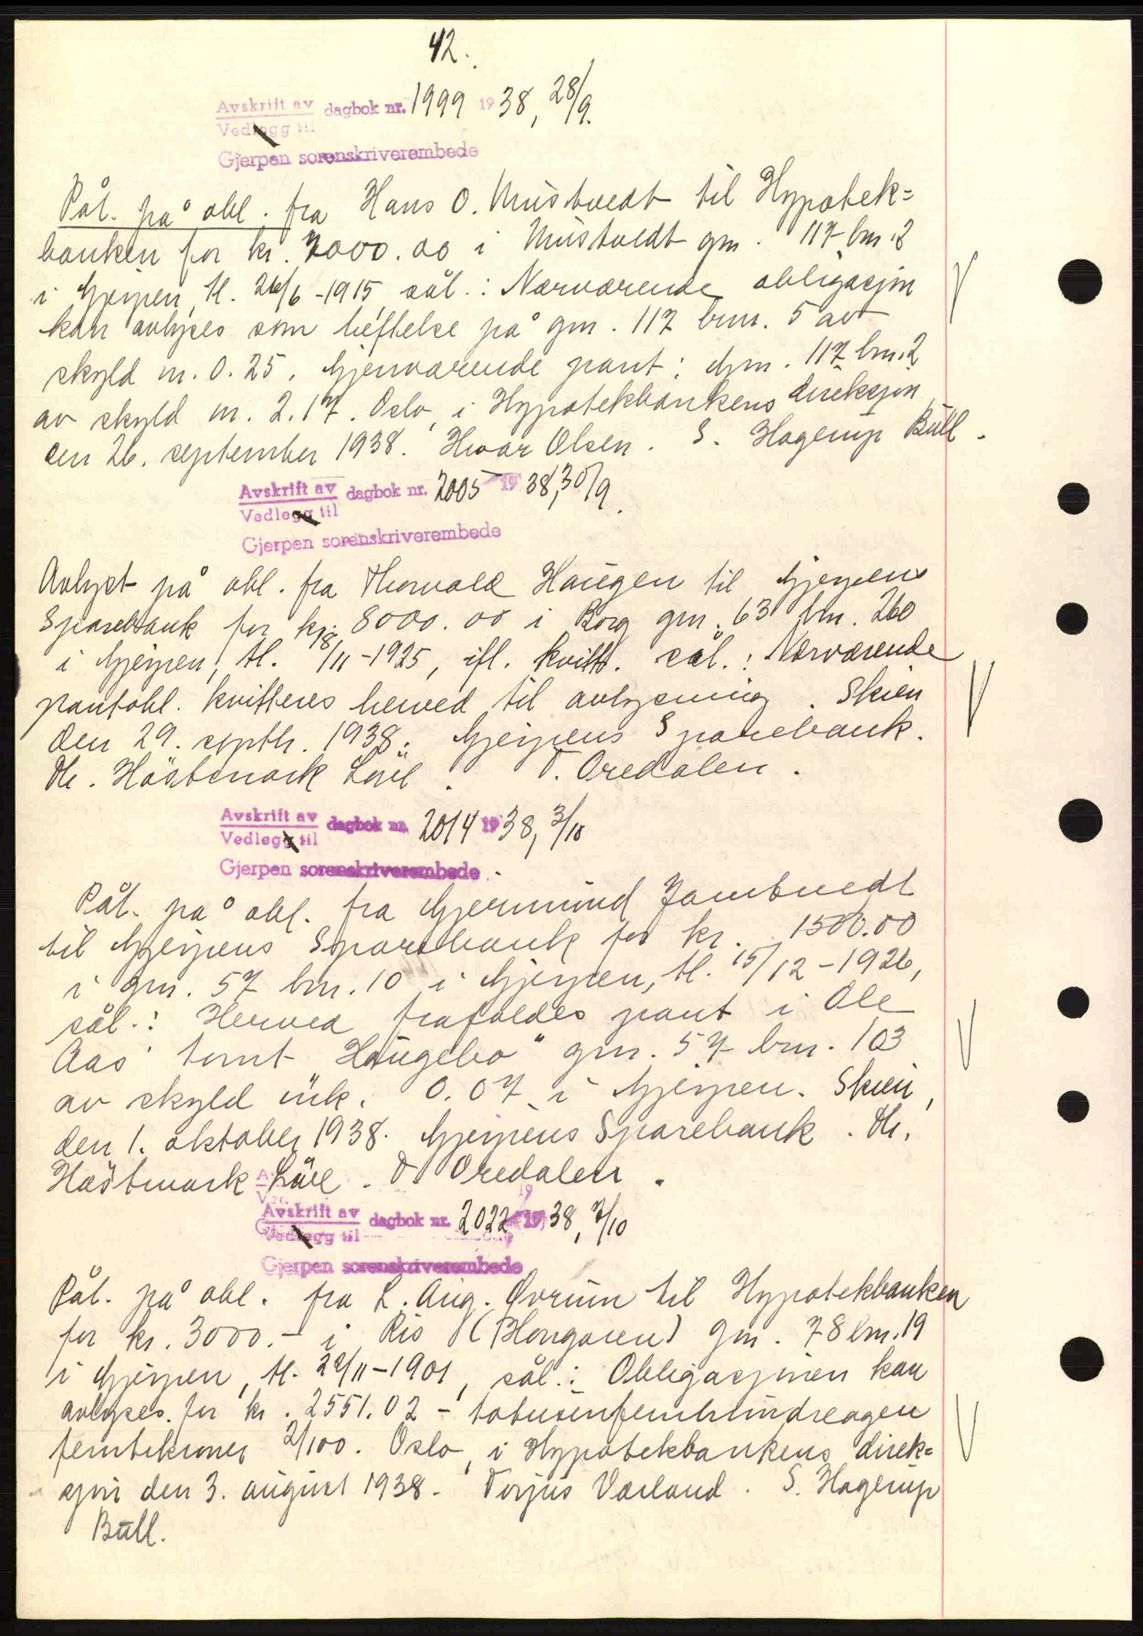 42.
Avskrift av dagbok nr. 1999 1938, 28/9.
Vedlegg til
Gjerpen sorenskriverembede
Påt. på obl. fra Hans O. Mustvedt til Hypotek=
banken for kr. 7000.00 i Mustvedt gnr. 117 bnr. 2
i Gjerpen, tl. 26/6-1915 sål.: Nærværende obligasjon
kan avlyses som heftelse på gnr. 117 bnr. 5 av
skyld m. 0.25. Gjenværende pant: Gnr. 117 bnr. 2
av skyld m. 2.17. Oslo, i Hypotekbankens direksjon
den 26. september 1938. Hvar Olsen. S. Hagerup Bull.
Avskrift av dagbok nr. 2005 1938, 30/9.
Vedlegg til
Gjerpen sorenskriverembede
Avlyst på obl. fra Thorvald Haugen til Gjerpens
Sparebank for kr. 8000.00 i Borg gnr. 63 bnr. 260
i Gjerpen, tl. 18/11-1925, ifl. kvitt. sål.: Nærværende
pantobl. kvitteres herved til avlysning. Skien
den 29. septbr. 1938. Gjerpens Sparebank.
Th. Høstmark Lull. O. Oredalen.
Avskrift av dagbok nr. 2014 1938, 3/10
Vedlegg til
Gjerpen sorenskriverembede
Påt. på obl. fra Gjermund Jambuedt
til Gjerpens Sparebank for kr. 1500.00
i gnr. 57 bnr. 10 i Gjerpen, tl. 15/12-1926,
sål.: Herved frafaldes pant i Ole
Aas' tomt "Haugebo" gnr. 57 bnr. 103
av skyld mk. 0.07 i Gjerpen. Skien,
den 1. oktober 1938. Gjerpens Sparebank. Th.
Høstmark Lull. O Oredalen.
Avskrift av dagbok nr. 2022 1938, 3/10
Vedlegg til
Gjerpen sorenskriverembede
Påt. på obl. fra L. Aug. Øvrum til Hypotekbanken
for kr. 3000.- i Ris (Blengaren) gnr. 78 bnr. 19
i Gjerpen, tl. 22/11-1901, sål.: Obligasjonen kan
avlyses for kr. 2551.02 - totusenfemhundreogen
femtikroner 2/100. Oslo, i Hypotekbankens direk=
sjon den 3. august 1938. Torjus Værland. S. Hagerup
Bull.